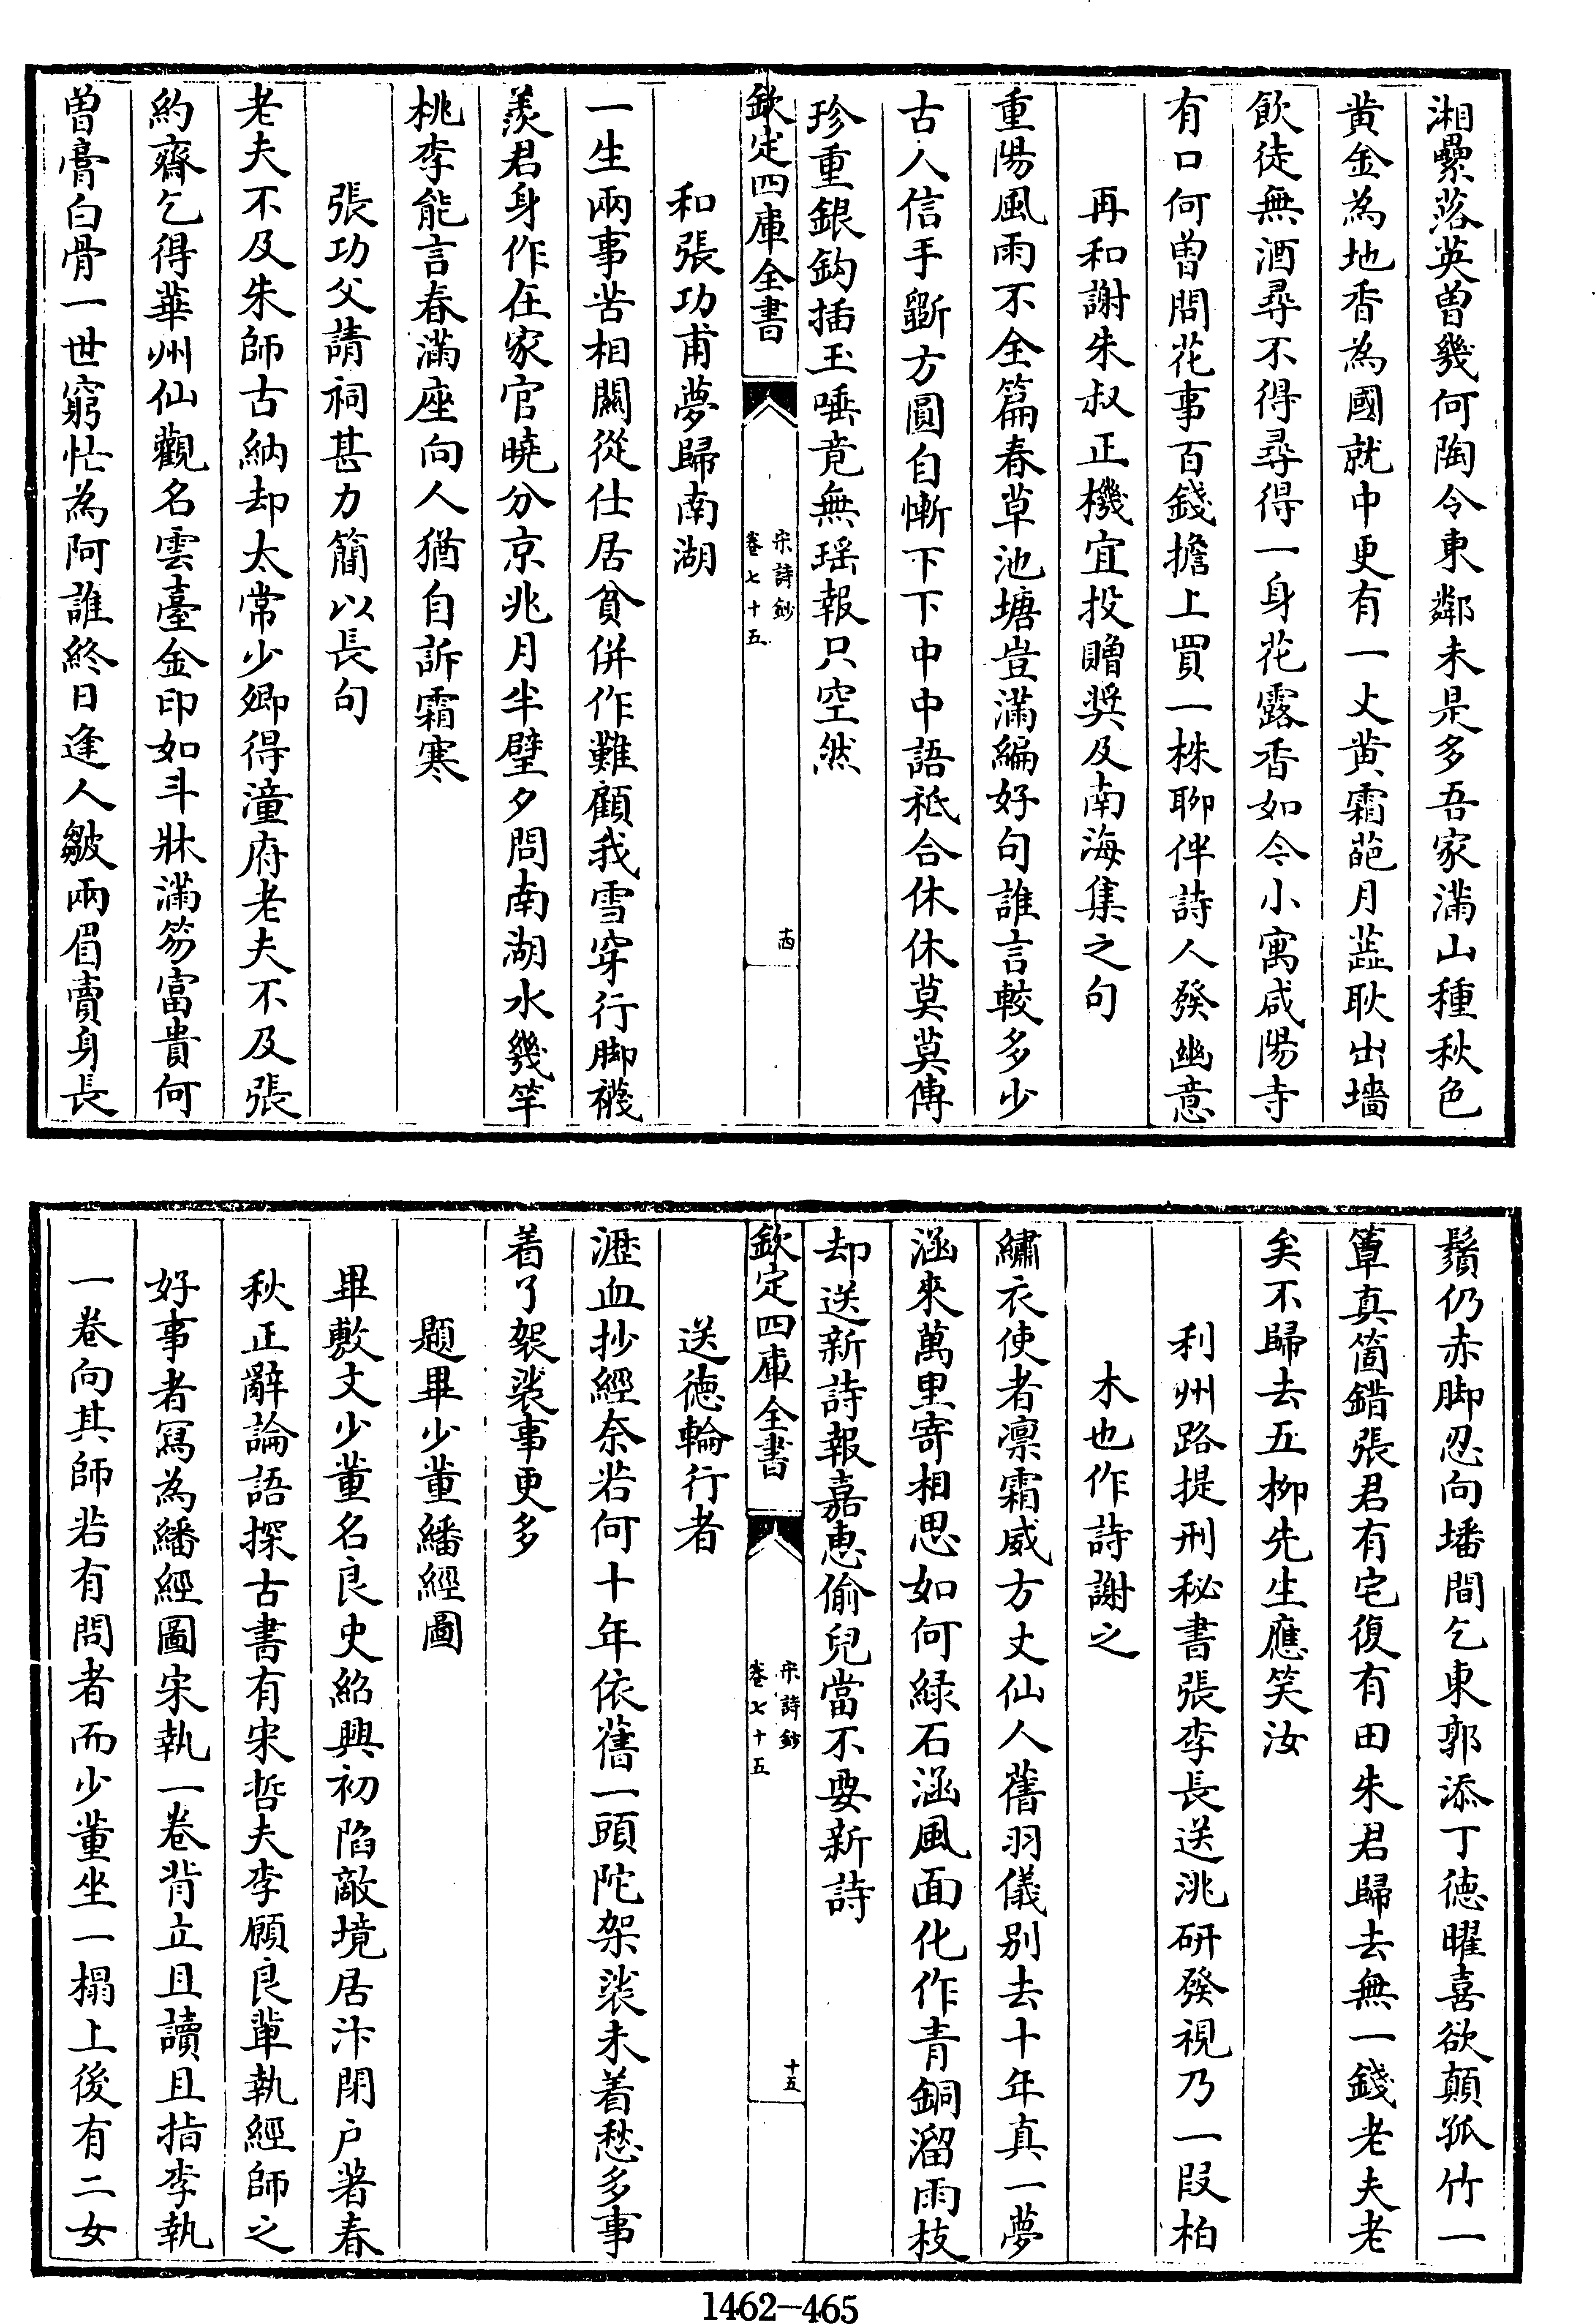 湘纍落英曽幾何陶令東鄰未是多吾家滿山種秋色
黄金為地香為國就中更有一丈黄霜葩月蘂耿出墻
飲徒無酒尋不得尋得一身花露香如今小寓咸陽寺
有口何曽問花事百錢擔上買一株聊伴詩人發幽意
再和謝朱叔正機宜投贈奨及南海集之句
重陽風雨不全篇春草池塘豈滿編好句誰言較多少
古人信手斵方圓自慚下下中中語祗合休休莫莫傳
珍重銀鈎插玉唾竟無瑶報只空然
欽定四庫全書
宋詩鈔
卷七十五
十四
和張功甫夢歸南湖
一生兩事苦相關從仕居貧併作難顧我雪穿行脚襪
羨君身作在家官曉分京兆月半壁夕問南湖水幾竿
桃李能言春滿座向人猶自訴霜寒
張功父請祠甚力簡以長句
老夫不及朱師古納却太常少卿得潼府老夫不及張
約齋乞得華州仙觀名雲臺金印如斗牀滿笏富貴何
曽膏白骨一世窮忙為阿誰終日逢人皺兩眉賣身長
鬚仍赤脚忍向墦間乞東郭添丁德曜喜欲顛孤竹一
簞真箇錯張君有宅復有田朱君歸去無一錢老夫老
矣不歸去五柳先生應笑汝
利州路提刑秘書張季長送洮研發視乃一段柏
木也作詩謝之
繡衣使者凛霜威方丈仙人舊羽儀别去十年真一夢
涵來萬里寄相思如何緑石涵風面化作青銅溜雨枝
却送新詩報嘉惠偷兒當不要新詩
欽定四庫全書
宋詩鈔
卷七十五
十五
送德輪行者
瀝血抄經奈若何十年依舊一頭陀袈裟未着愁多事
着了袈裟事更多
題畢少董繙經圖
畢敷文少董名良史紹興初陷敵境居汴閉户著春
秋正辭論語探古書有宋哲夫李願良軰執經師之
好事者冩為繙經圖宋執一卷背立且讀且指李執
一卷向其師若有問者而少董坐一榻上後有二女
1462—465